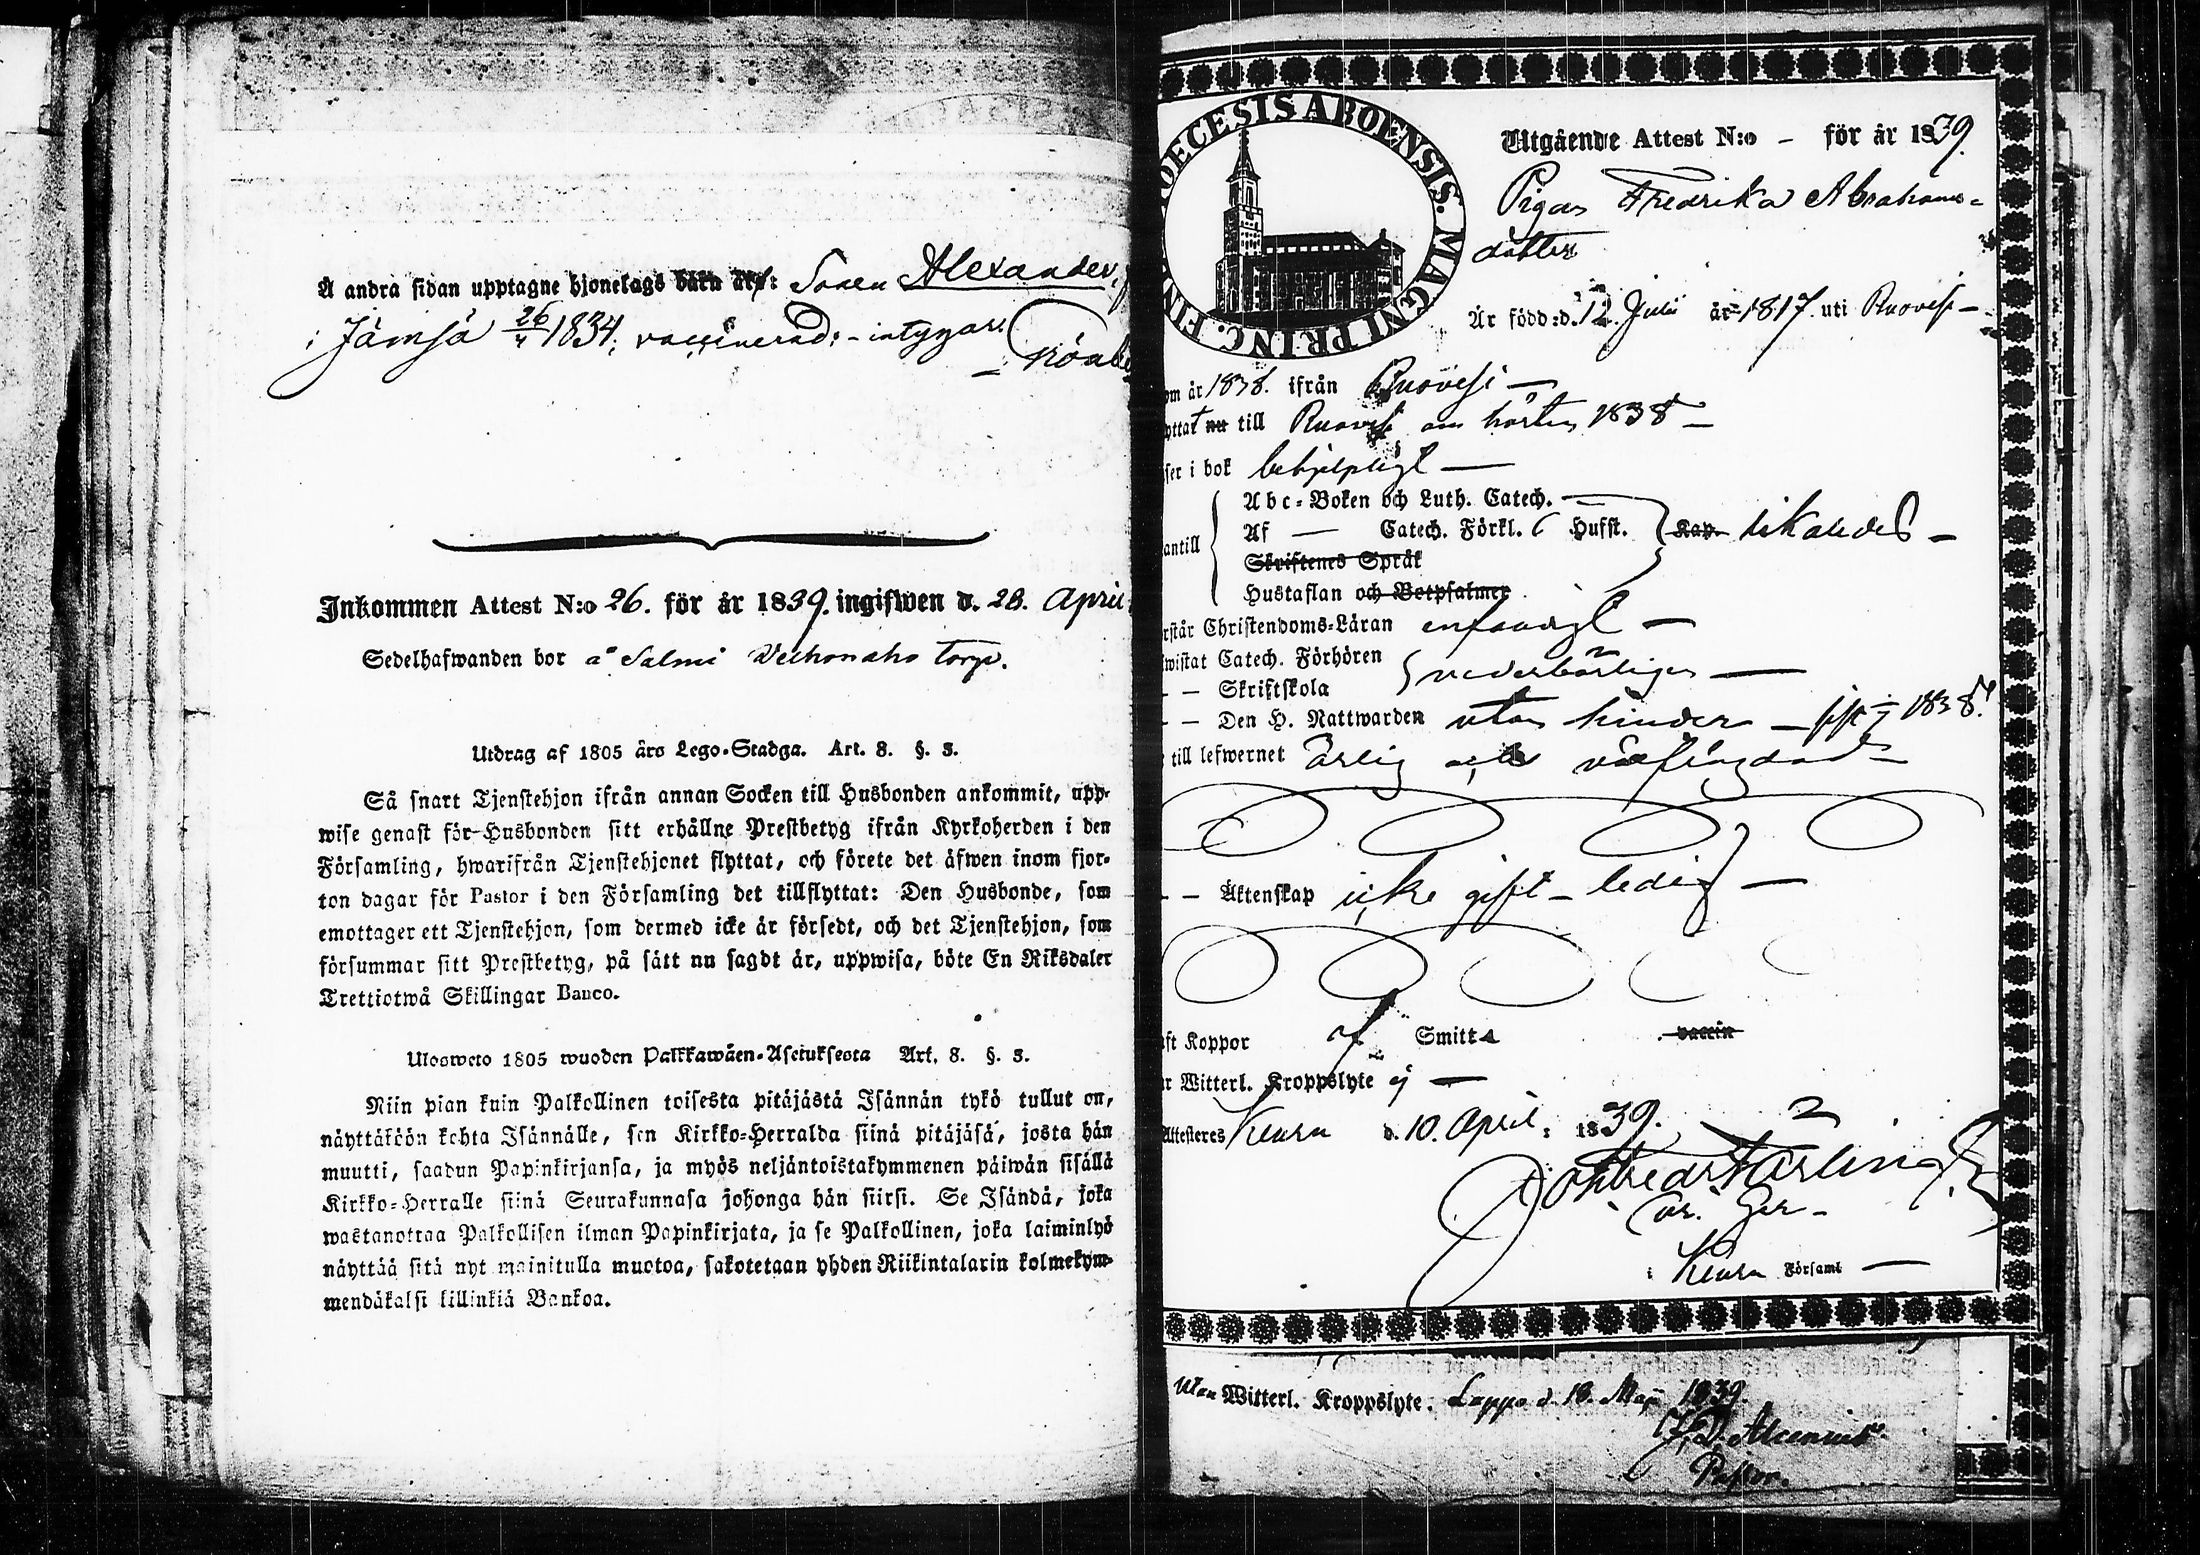 Å andra sidan upptagne hjonelags barn är: Sonen Alexander, f
i Jämsä 26/ 1834, vaccinerad: - intygar
Inkommen Attest N:o 26. för år 1839. ingifwen d. 28. April
Sedelhafwanden bor å Salmi Velhonaho torp.
Utdrag af 1805 års Lego-Stadga. Art. 8. §. 3.
Så snart Tjenstehjon ifrån annan Socken till Husbonden ankommit, upp-
wise genast för Husbonden sitt erhållne Prestbetyg ifrån Kyrkoherden i den
Församling, hwarifrån Tjenstehjonet flyttat, och förete det äfwen inom fjor-
ton dagar för Pastor i den Församling det tillflyttat: Den Husbonde, som
emottager ett Tjenstehjon, som dermed icke är försedt, och det Tjenstehjon, som
försummar sitt Prestbetyg, på sätt nu sagdt är, uppwisa, böte En Riksdaler
Trettiotwå Skillingar Banco.
Ulosweto 1805 wuoden Palkkawäen-Asetuksesta Art. 8. §. 3.
Niin pian kuin Palkollinen toisesta pitäjästä Isännän tykö tullut on,
näyttäköön kohta Isännälle, sen Kirkko-Herralda siinä pitäjäsä, josta hän
muutti, saadun Papinkirjansa, ja myös neljäntoistakymmenen päiwän sisällä
Kirkko-Herralle siinä Seurakunnasa johonga hän siirsi. Se Isändä, joka
wastanottaa Palkollisen ilman Papinkirjata, ja se Palkollinen, joka laiminlyö
näyttää sitä nyt mainitulla muotoa, sakotetaan yhden Riikintalarin kolmekym-
mendäkaksi killinkiä Bankoa.
OECESIS ABOENSIS. MAGNI PRINC. FIN
Utgående Attest N:o - för år 1839.
Pigan Fredrika Abrahams-
dotter
Är född: d. 12. Julii år 1817. uti Ruovesi -
om år 1838. ifrån Ruovesi -
yttat nu till Ruovesi om hösten 1838 -
ser i bok behjelpligt -
Abc-Boken och Luth. Catech.
antill Af - Catech. Förkl. Hufst. Kap. likaledes -
Skriftenes Språk
Hustaflan och Botpsalmer
rstår Christendoms-Läran enfaldigt -
wistat Catech. Förhören vederbörligen -
- - Skriftskola
- - Den H. Nattwarden utan hinder - sist 1838.
till lefwernet ärlig och välfrägdad
- - Äktenskap icke gift - ledig -
ft Koppor af Smitta vaccin
r Witterl. Kroppslyte ej -
Attesteres Keuru d. 10. April. 1839.
i Keuru Församl -
utan Witterl. Kroppslyte. Loppo d. 18. Maji 1839.
Pastor.